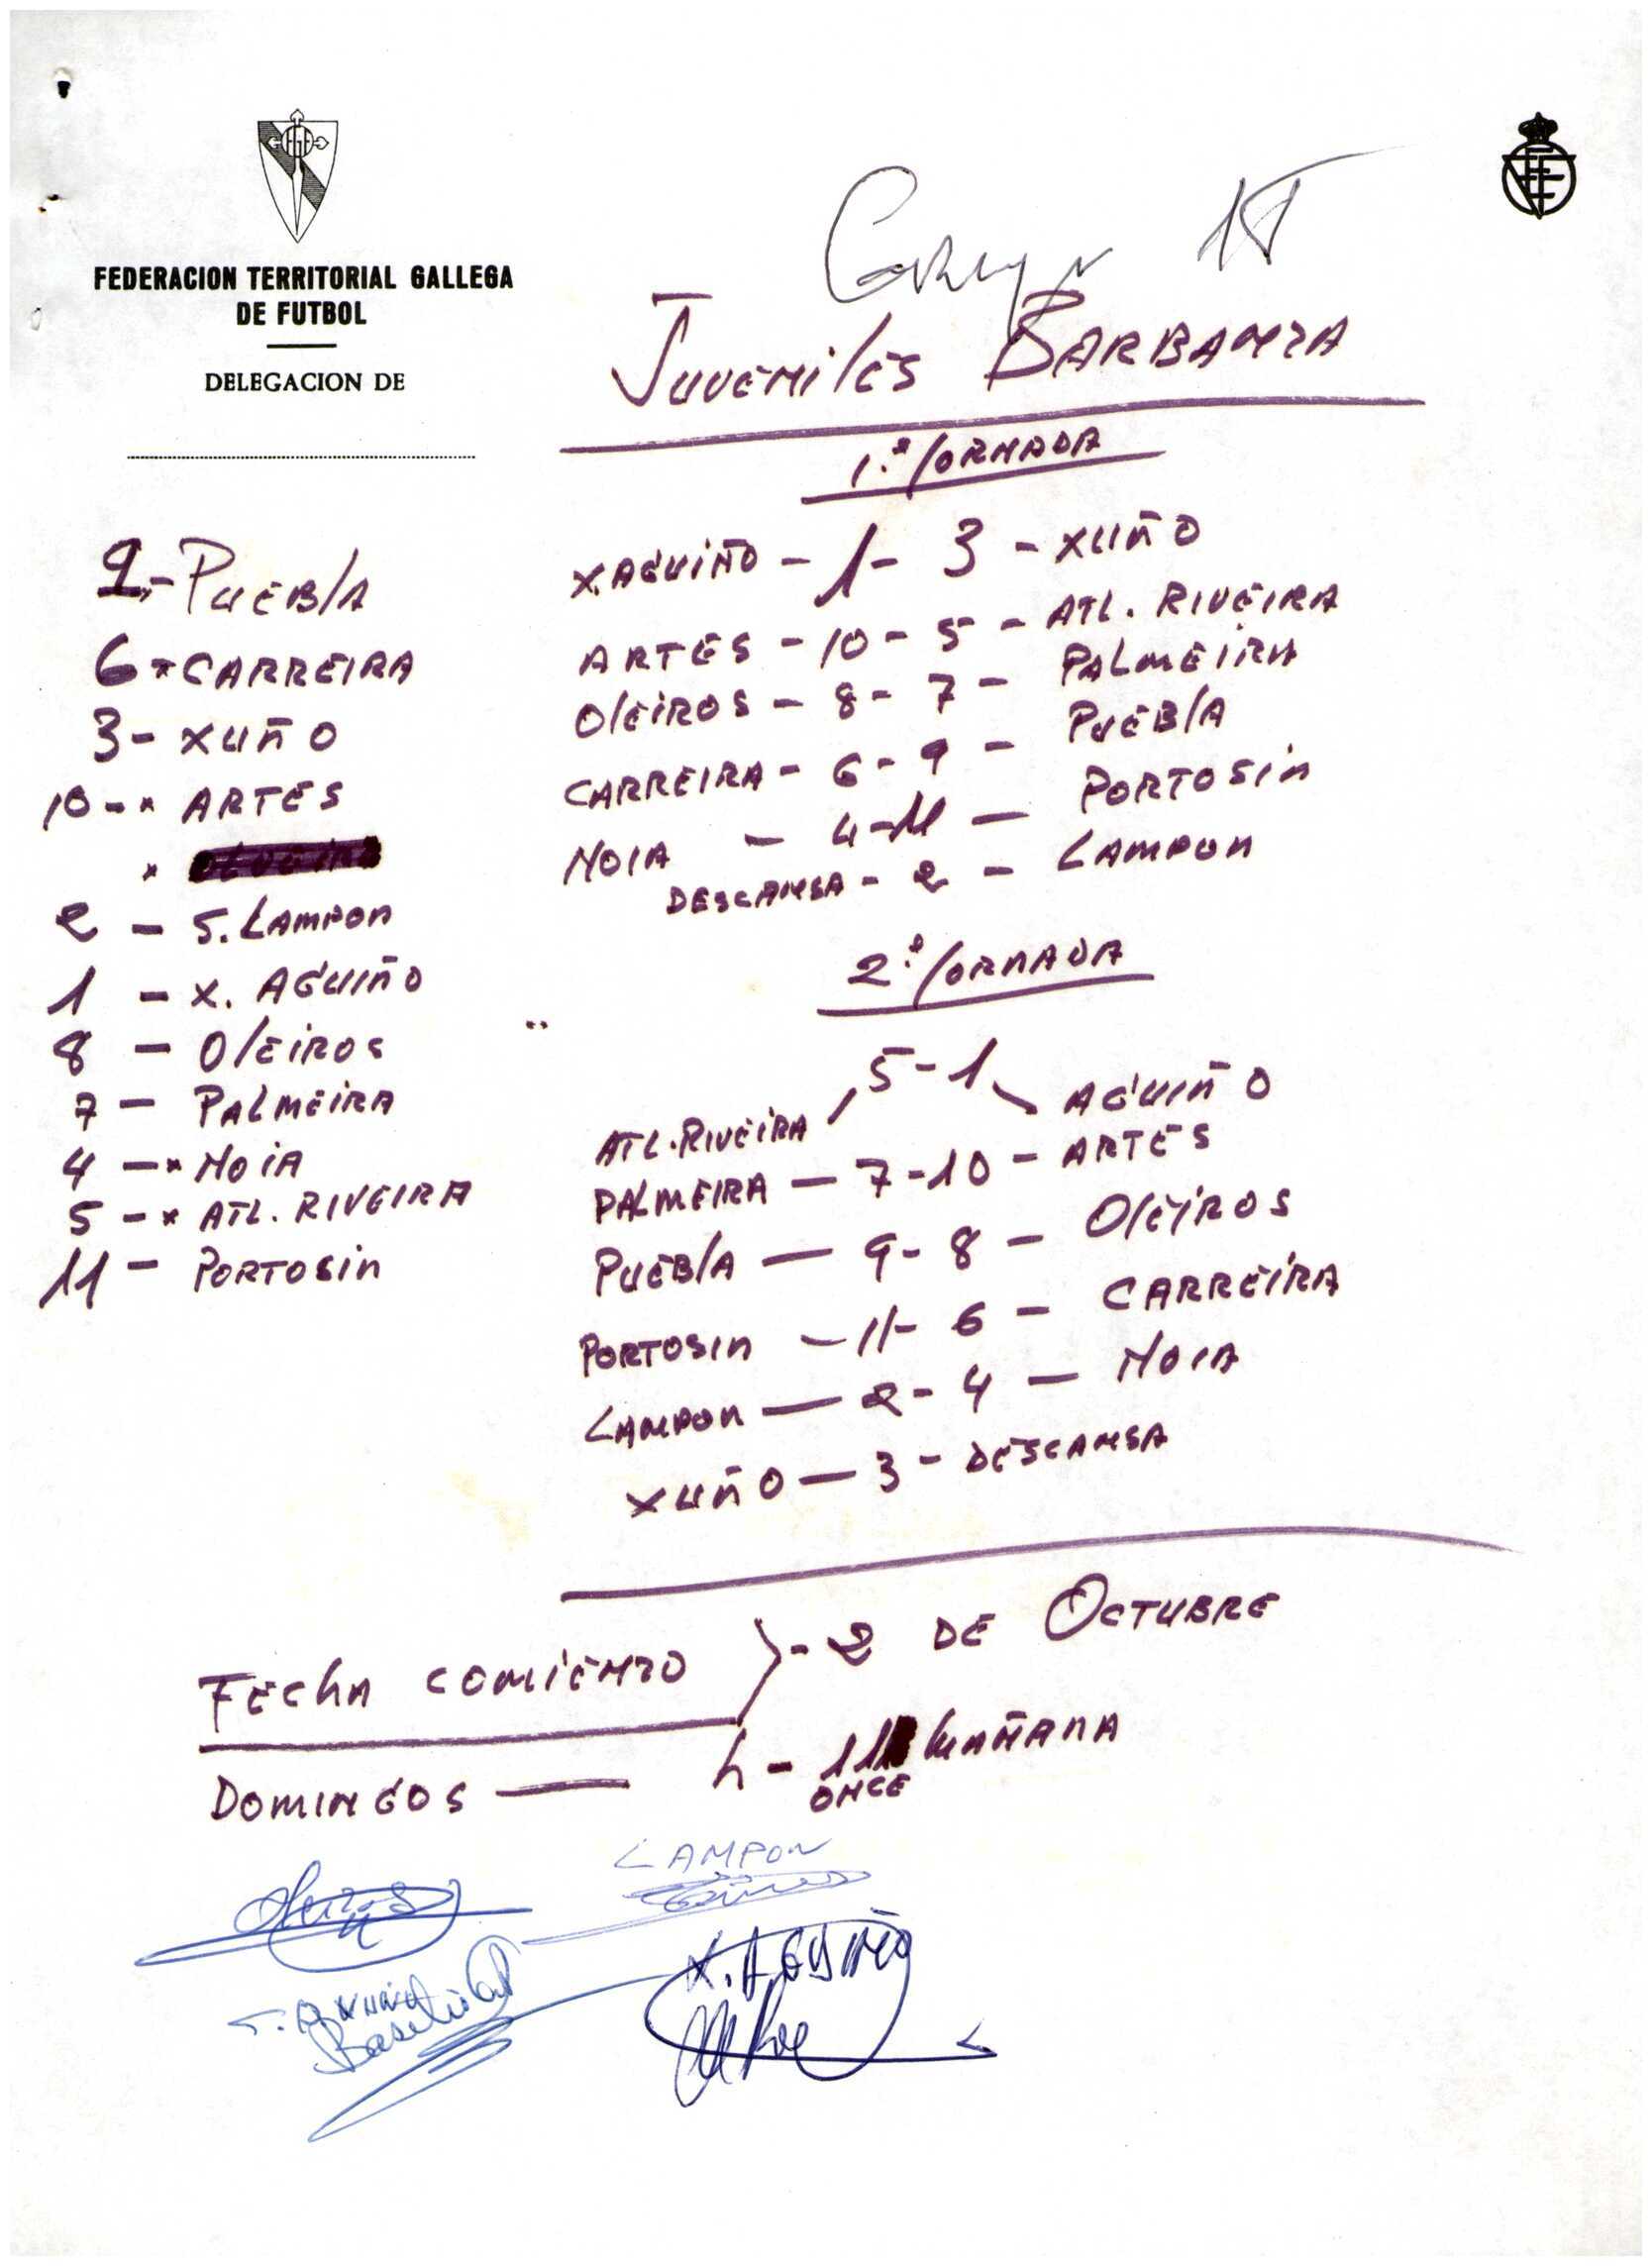 FEDERACION TERRITORIAL GALLEGA
DE FUTBOL
DELEGACION DE
JUVENILES BARBANZA
1.ª JORNADA
9.- PUEBLA
6 - CARREIRA
3 - XUÑO
10 - x ARTES
x
2 - S. LAMPON
1 - X. AGUIÑO
8 - OLEIROS
7 - PALMEIRA
4 - x NOIA
5 - x ATL. RIVEIRA
11 - PORTOSIN
X. AGUIÑO - 1 - 3 - XUÑO
ARTES - 10 - 5 - ATL. RIVEIRA
OLEIROS - 8 - 7 - PALMEIRA
CARREIRA - 6 - 9 - PUEBLA
NOIA - 4 - 11 - PORTOSIN
DESCANSA - 2 - LAMPON
2.ª JORNADA
ATL. RIVEIRA 5 - 1 AGUIÑO
PALMEIRA - 7 - 10 - ARTES
PUEBLA - 9 - 8 - OLEIROS
PORTOSIN - 11 - 6 - CARREIRA
LAMPON - 2 - 4 - NOIA
XUÑO - 3 - DESCANSA
FECHA COMIENZO } - 2 DE OCTUBRE
DOMINGOS - h - 11 MAÑANA
ONCE
LAMPON
X. AGUIÑO